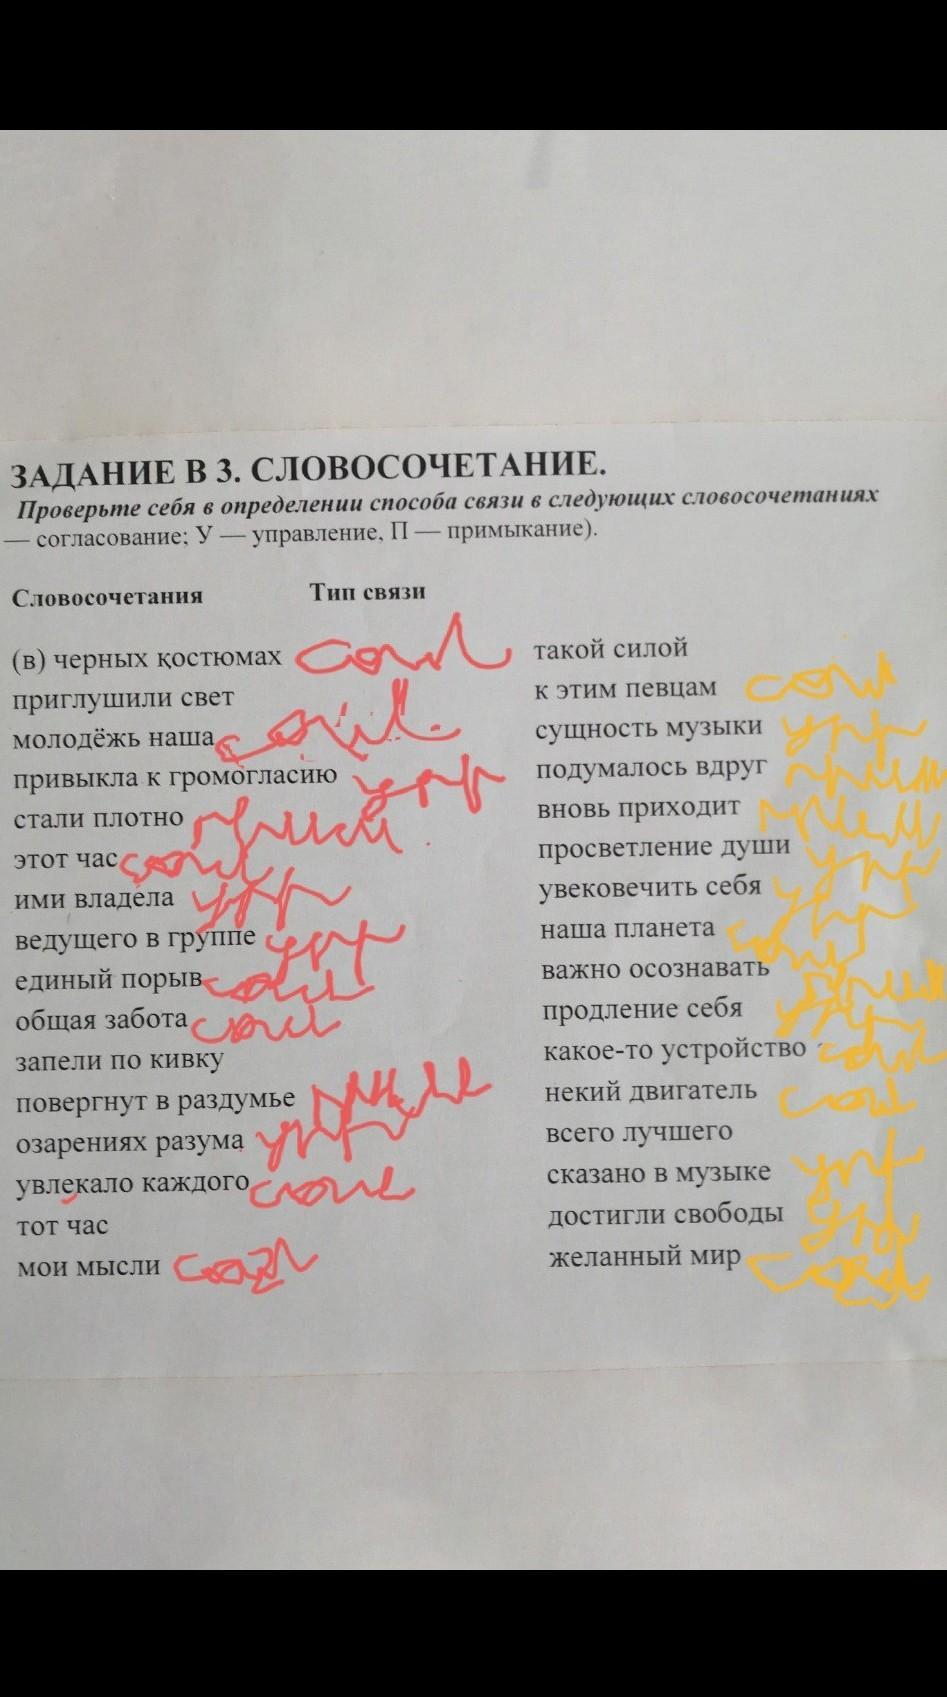 ЗАДАНИЕ В 3. СЛОВОСОЧЕТАНИЕ.
Проверьте себя в определении способа связи в следующих словосочетаниях
— согласование; У — управление, П — примыкание).
Словосочетания Тип связи
(в) черных костюмах согл
приглушили свет
молодёжь наша согл
привыкла к громогласию упр
стали плотно прим
этот час согл
ими владела упр
ведущего в группе упр
единый порыв согл
общая забота согл
запели по кивку
повергнут в раздумье прим
озарениях разума упр
увлекало каждого согл
тот час
мои мысли согл
такой силой
к этим певцам согл
сущность музыки упр
подумалось вдруг прим
вновь приходит прим
просветление души упр
увековечить себя упр
наша планета согл
важно осознавать прим
продление себя упр
какое-то устройство согл
некий двигатель согл
всего лучшего
сказано в музыке упр
достигли свободы упр
желанный мир согл